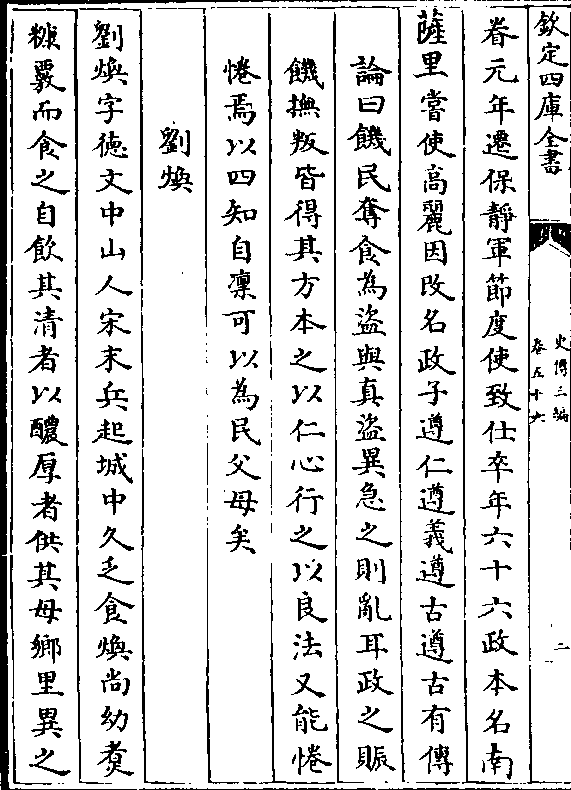 欽定四庫全書
史傳三編
卷五十六
二
眷元年遷保靜軍節度使致仕卒年六十六政本名南
薩里嘗使高麗因改名政子遵仁遵義遵古遵古有傳
論曰饑民奪食為盜與真盜異急之則亂耳政之賑
饑撫叛皆得其方本之以仁心行之以良法又能惓
惓焉以四知自凛可以為民父母矣
劉煥
劉煥字徳文中山人宋末兵起城中久乏食煥尚幼煑
糠覈而食之自飲其清者以醲厚者供其母鄉里異之